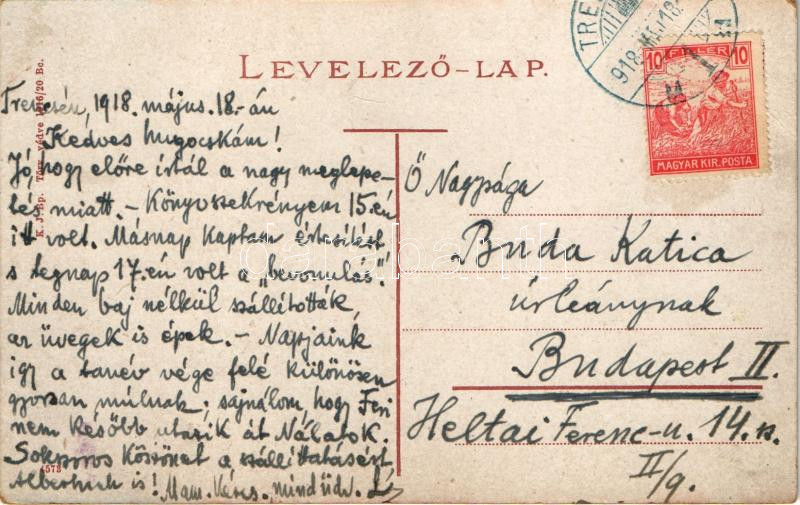 LEVELEZŐ-LAP.
Trencsén, 1918. május. 18.-án
Kedves hugocskám!
Jó, hogy előre írtál a nagy meglepe-
tés miatt. - Könyvszekrényem 15.én
itt volt. Másnap kaptam értesítést
s tegnap 17.én volt a „bevonulás."
Minden baj nélkül szállították,
az üvegek is épek. - Napjaink
így a tanév vége felé különösen
gyorsan múlnak; sajnálom, hogy Feri
nem később utazik át Nálatok.
Sokszoros köszönet a szállíttatásért
Albertnek is! Mam. Kéres. mind üdv.
K. J. Bp. Törv. védve 1916/20 Bc.
4573
TRE
918 MÁJ 18
FILLÉR
10 10
MAGYAR KIR. POSTA
Ő Nagysága
Buda Katica
úrleánynak
Budapest II.
Heltai Ferenc-u. 14. sz.
II/9.
darabanth